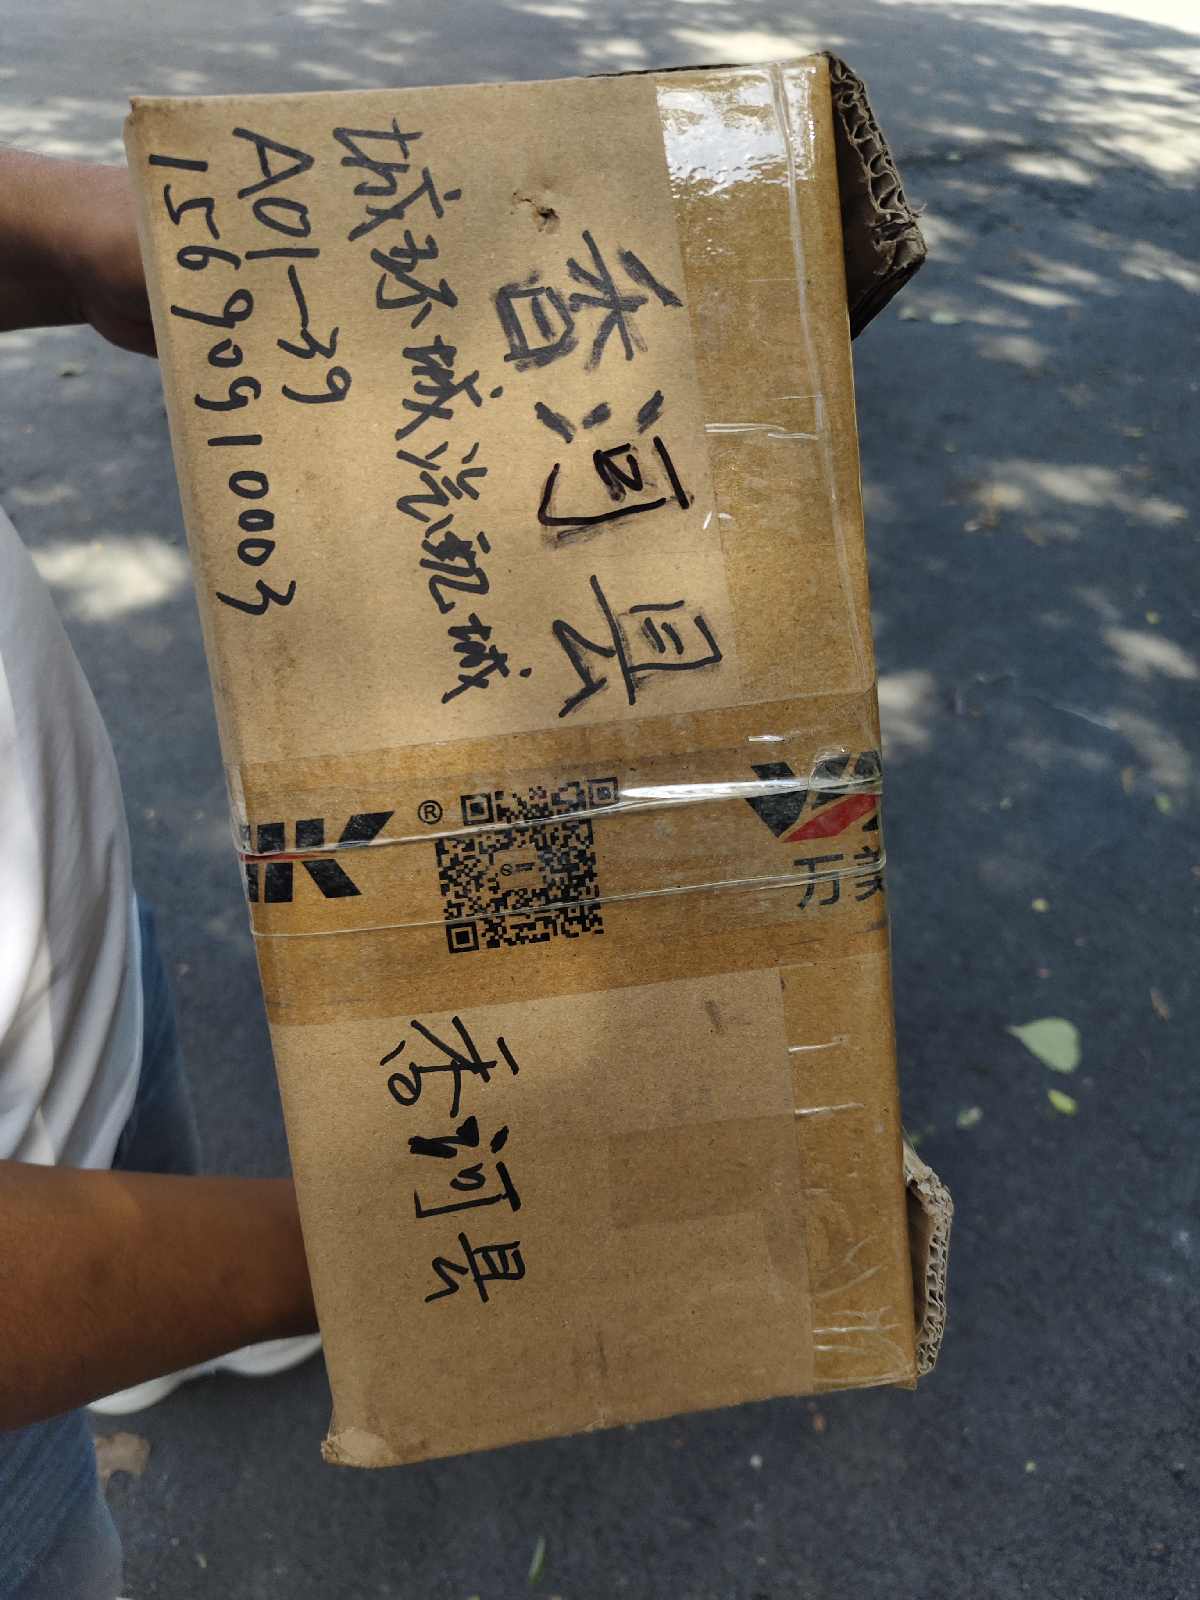 香河县
城环城汽机城
A01-39
15690910003
®
万
香河县